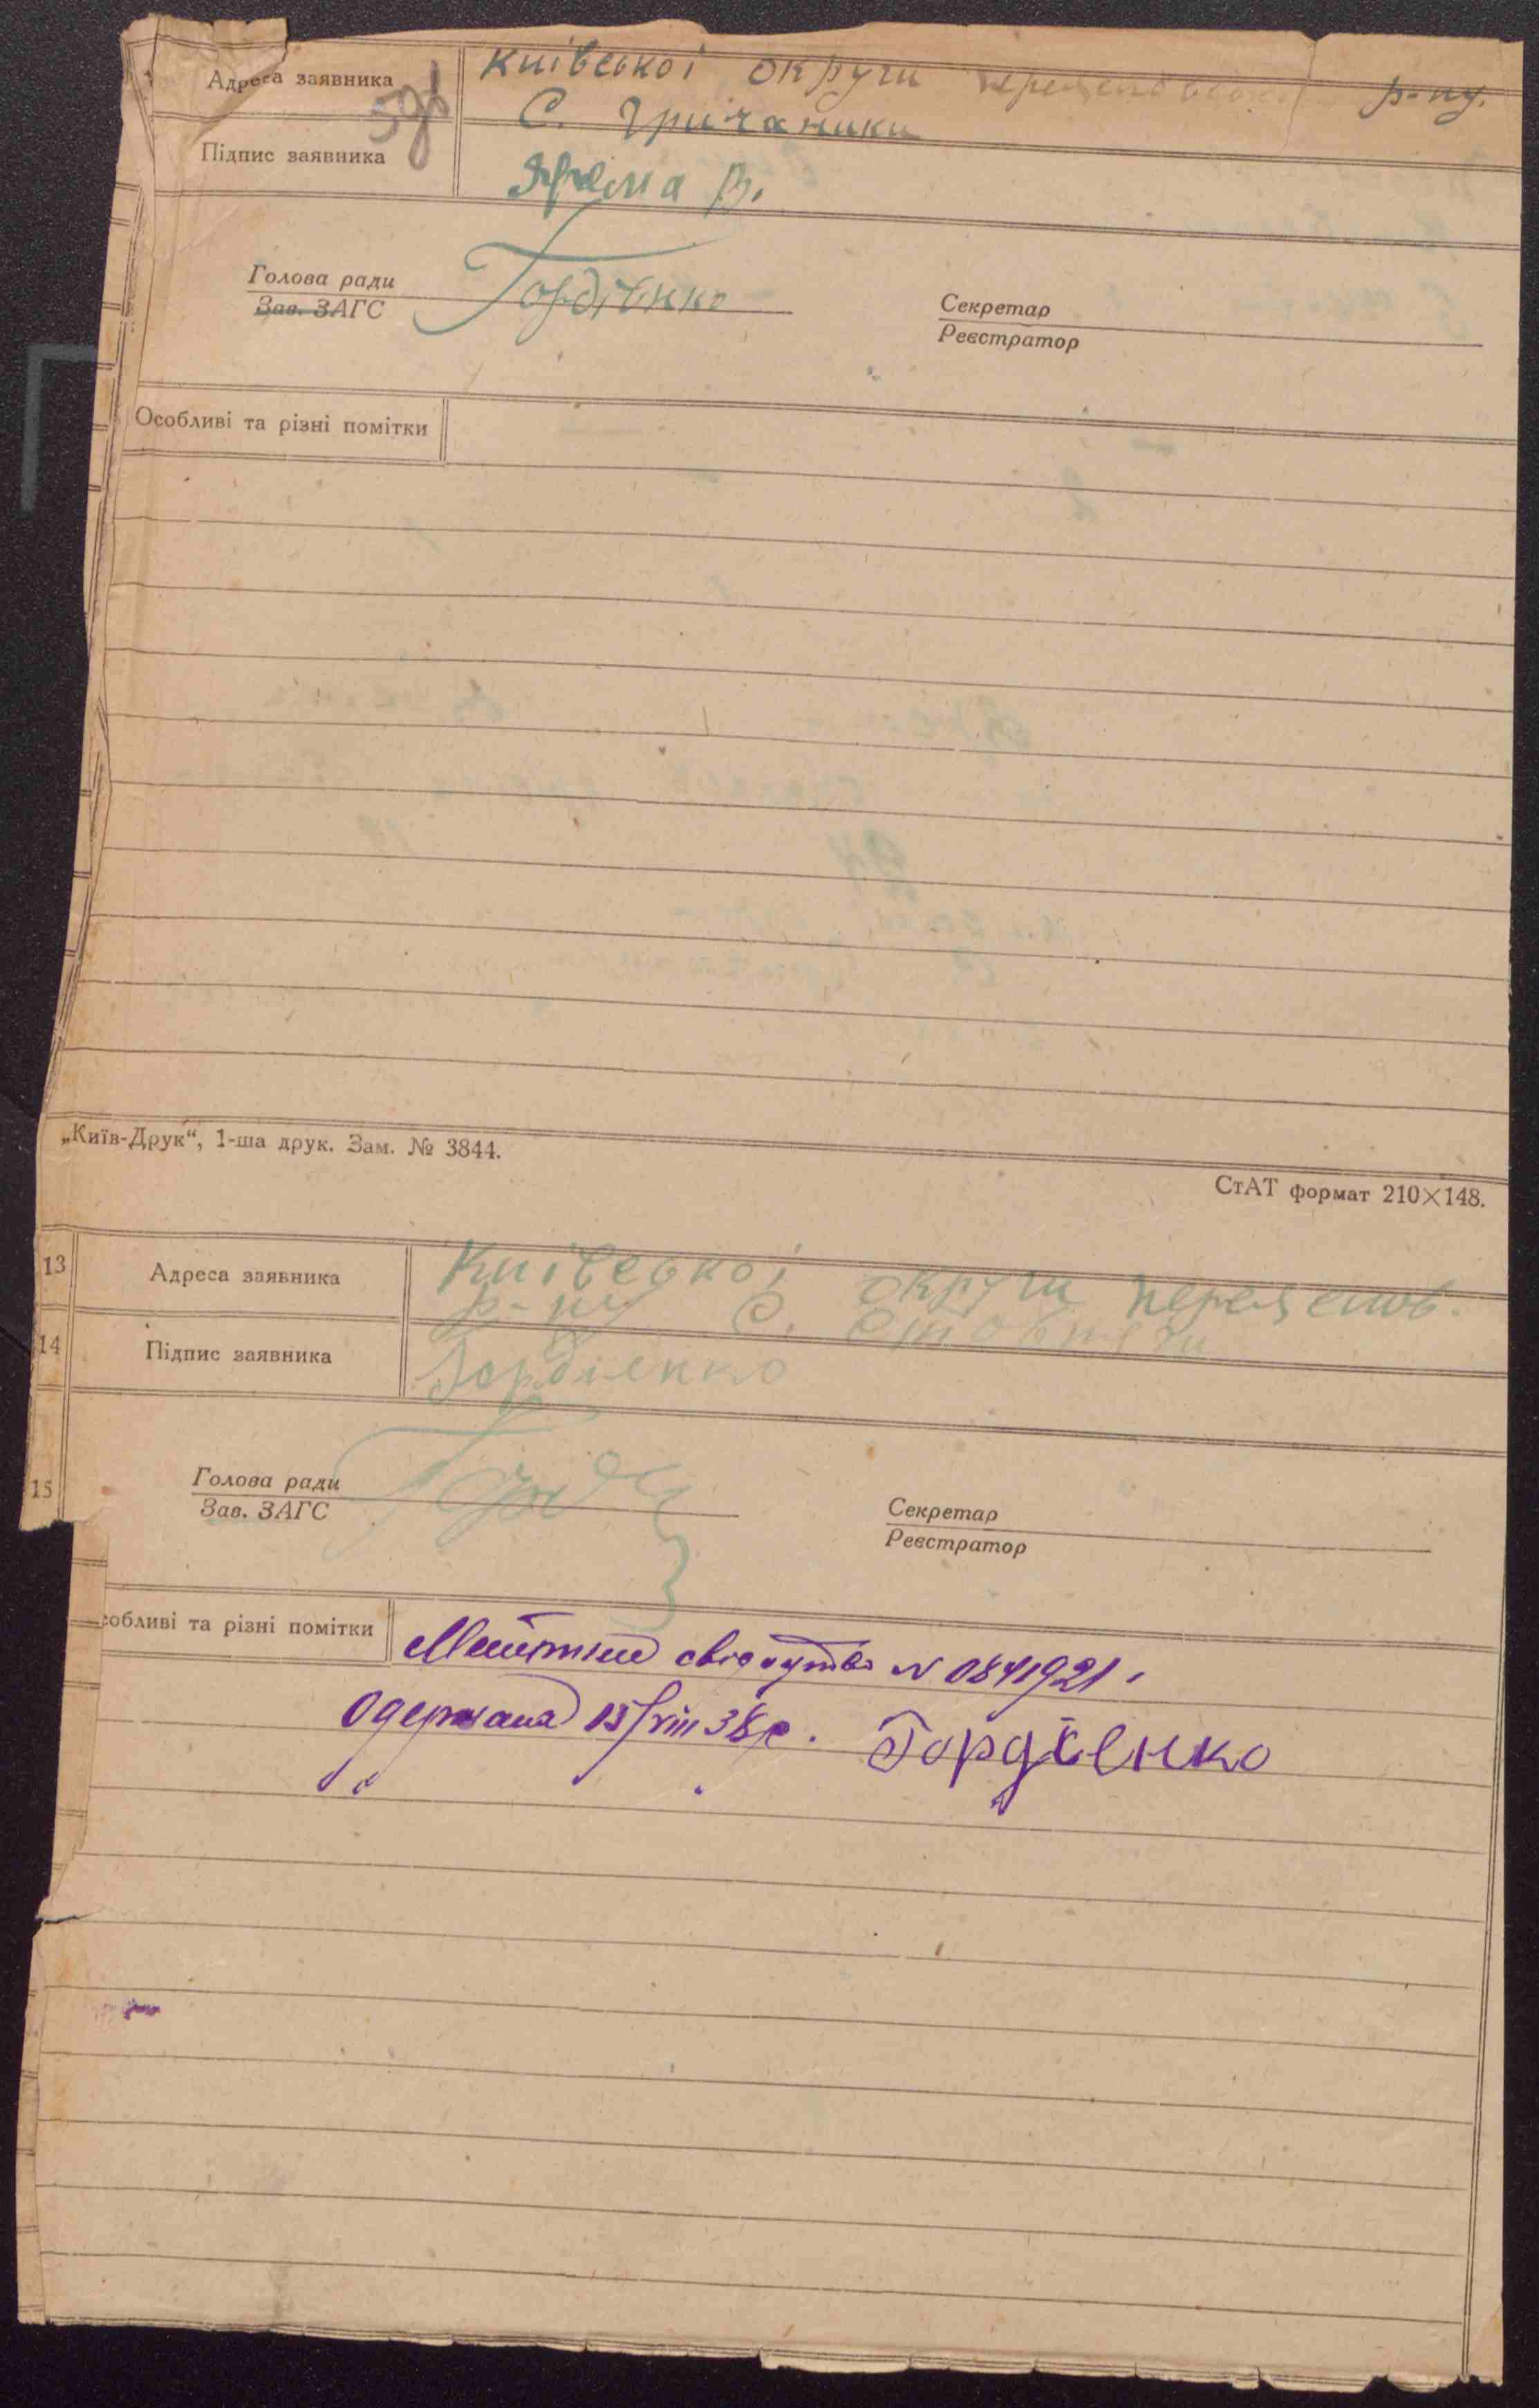 Адреса заявника
Київської округи р-ну.
59
С. Гричаники
Підпис заявника
Ярема В.
Голова ради
Зав. ЗАГС
Гордієнко
Секретар
Реєстратор
Особливі та різні помітки
„Київ-Друк“, 1-ша друк. Зам. № 3844.
СтАТ формат 210×148.
13
Адреса заявника
Київської округи
р-ну С.
14
Підпис заявника
Гордієнко
15
Голова ради
Зав. ЗАГС
Секретар
Реєстратор
собливі та різні помітки
свідоцтво N 0841921.
Одержала 15/VIII 38р. Гордієнко